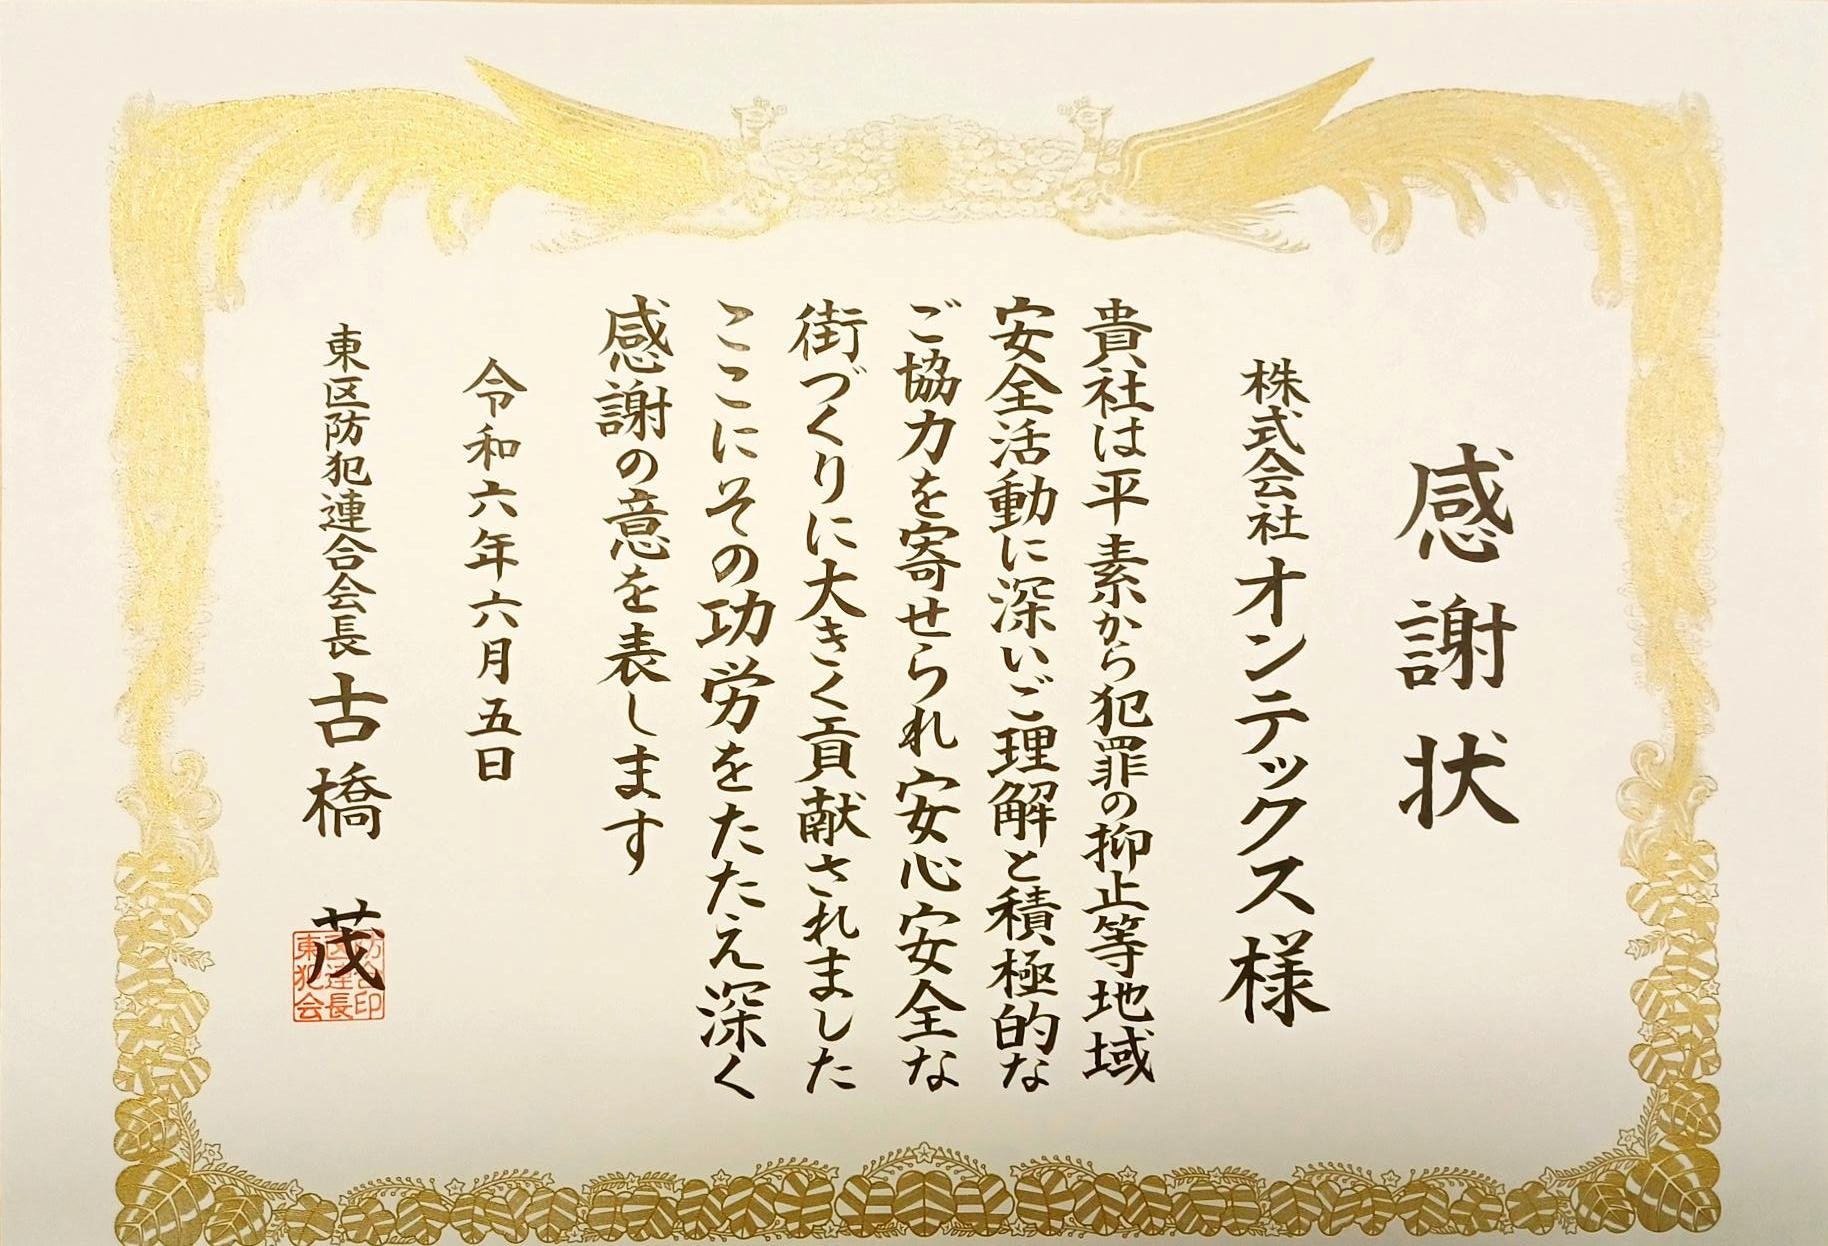 感謝状
株式会社オンテックス様
貴社は平素から犯罪の抑止等地域
安全活動に深いご理解と積極的な
ご協力を寄せられ安心安全な
街づくりに大きく貢献されました
ここにその功労をたたえ深く
感謝の意を表します
令和六年六月五日
東区防犯連合会長 古橋 茂